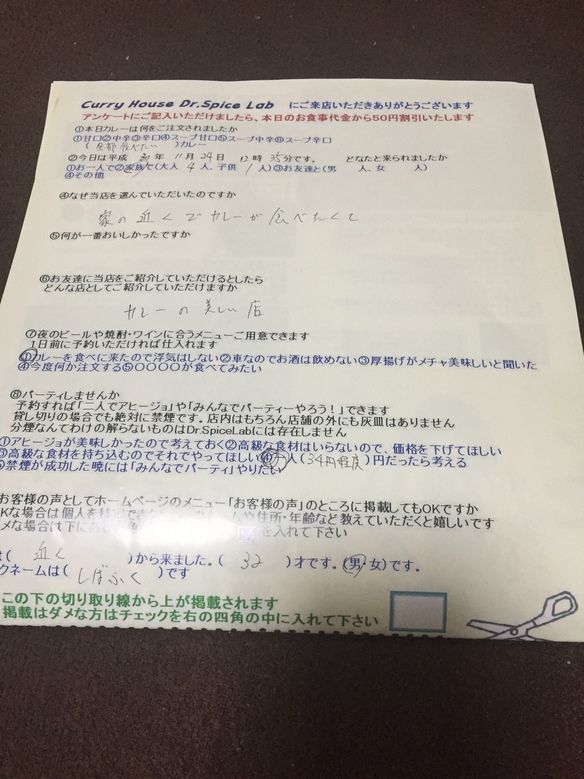 Curry House Dr.Spice Lab にご来店いただきありがとうございます
アンケートにご記入いただけましたら、本日のお食事代金から50円割引いたします
①本日カレーは何をご注文されましたか
①甘口②中辛③辛口④スープ甘口⑤スープ中辛⑥スープ辛口
(全部食べたい)カレー
②今日は平成 30 年 11月 24日 12時 35分です。 どなたと来られましたか
①お一人で②家族で(大人 4人、子供 1人)③お友達と(男 人、女 人)
④その他
④なぜ当店を選んでいただいたのですか
家の近くでカレーが食べたくて
⑤何が一番おいしかったですか
⑥お友達に当店をご紹介していただけるとしたら
どんな店としてご紹介していただけますか
カレーの美しい店
⑦夜のビールや焼酎・ワインに合うメニューご用意できます
1日前に予約いただければ仕入れます
①カレーを食べに来たので浮気はしない②車なのでお酒は飲めない③厚揚げがメチャ美味しいと聞いた
④今度何か注文する⑤〇〇〇〇が食べてみたい
⑧パーティしませんか
予約すれば「二人でアヒージョ」や「みんなでパーティーやろう!」できます
貸し切りの場合でも絶対に禁煙です。店内はもちろん店舗の外にも灰皿はありません
分煙なんてわけの解らないものはDr.SpiceLabには存在しません
①アヒージョが美味しかったので考えておく②高級な食材はいらないので、価格を下げてほしい
③高級な食材を持ち込むのでそれでやってほしい④一人(34円程度)円だったら考える
⑤禁煙が成功した暁には「みんなでパーティ」やりたい
お客様の声としてホームページのメニュー「お客様の声」のところに掲載してもOKですか
Kな場合は個人を や住所・年齢など教えていただくと嬉しいです
メな場合は下に を入れて下さい
は(近く)から来ました。(32)才です。(男・女)です。
クネームは(しばふく)です
この下の切り取り線から上が掲載されます
掲載はダメな方はチェックを右の四角の中に入れて下さい